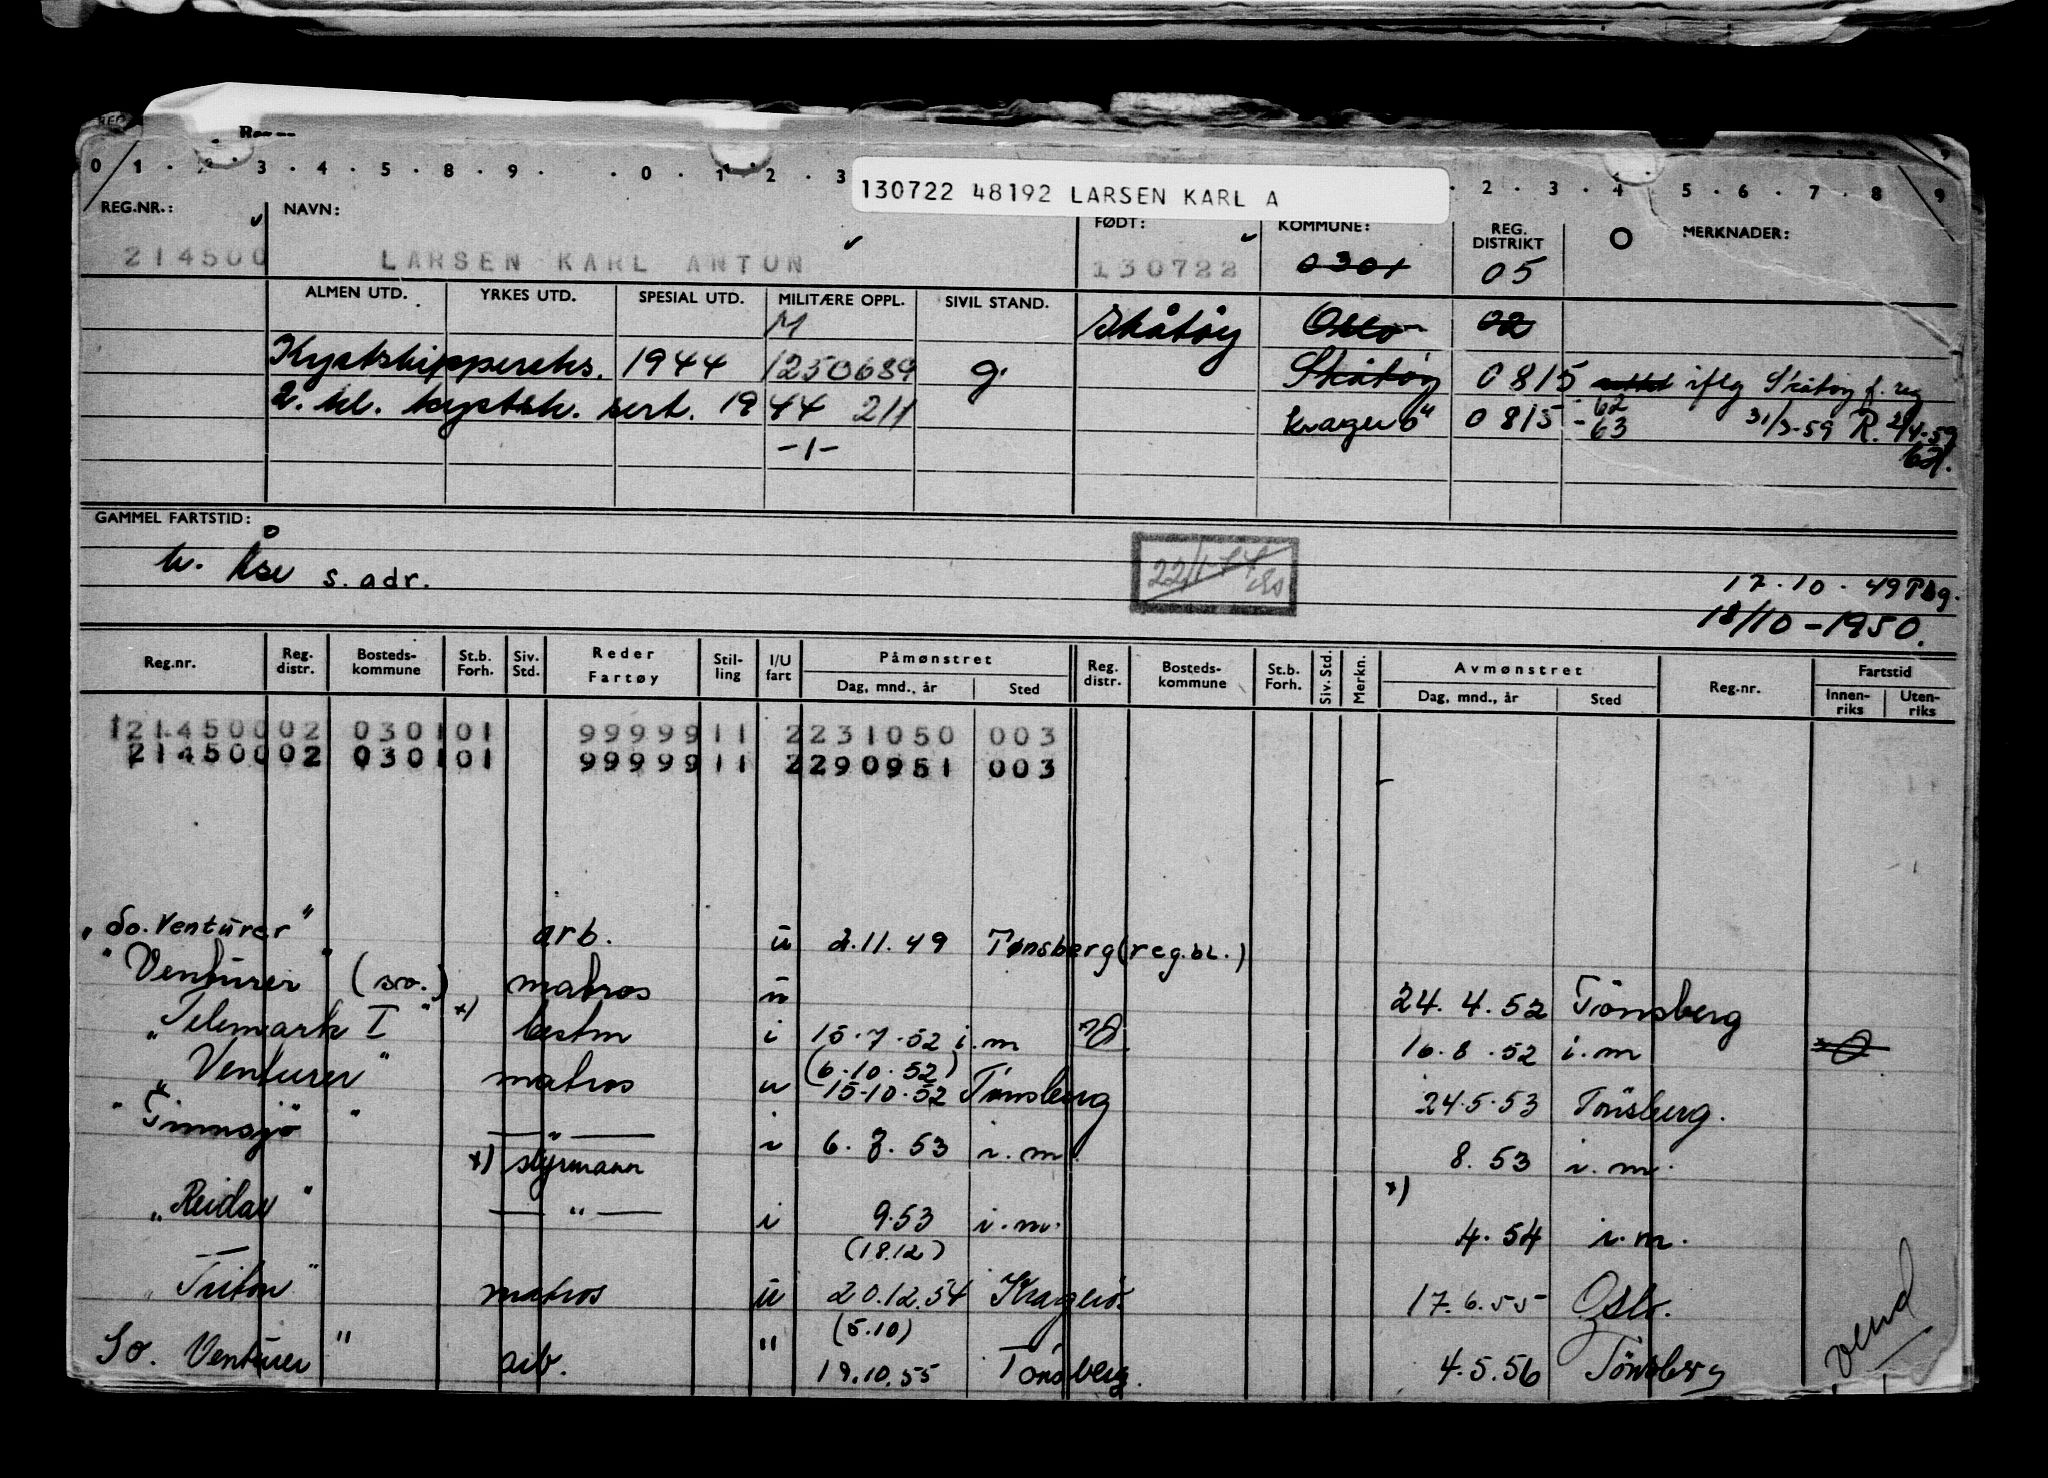 0 1 . 2 . 3 . 4 . 5 . 8 . 9 . . 0 . 1 . 2 . 3 . 2 . 3 . 4 . 5 . 6 . 7 . 8 9
130722 48192 LARSEN KARL A
REG.NR.: NAVN: FØDT: KOMMUNE: REG. DISTRIKT O MERKNADER:
214500 LARSEN KARL ANTON 130722 0301 05
ALMEN UTD. YRKES UTD. SPESIAL UTD. MILITÆRE OPPL. SIVIL STAND.
M Skåtøy Oslo 02
Kystskippereks. 1944 1250689 g. Skåtøy 0815 iflg Skåtøy f. reg
2. kl. kystsk. sert. 1944 211 Kragerö 0815 - 62 63 31/3-59 R. 2/4-59
-1-
GAMMEL FARTSTID:
h. Åse s. adr. 22/1-44
17.10.49 Tbg.
18/10-1950.
Reg.nr. Reg. distr. Bosteds-kommune St.b. Forh. Siv. Std. Reder Fartøy Stil-ling I/U fart Påmønstret Reg. distr. Bosteds-kommune St.b. Forh. Siv. Std. Merkn. Avmønstret Reg.nr. Fartstid
Dag, mnd., år Sted Dag, mnd., år Sted Innen-riks Uten-riks
121450002 030101 9999911 2231050 003
21450002 030101 9999911 2290951 003
"So. Venturer" arb. u 2.11.49 Tønsberg (reg.bl.)
"Venturer" (so.) matros u 24.4.52 Tönsberg
"Telemark I" x) bestm i 15.7.52 i.m 16.8.52 i.m
(6.10.52)
"Venturer" matros u 15-10-52 Tönsberg 24.5.53 Tönsberg.
"Tinnsjö" — " — i 6.7.53 i.m. 8.53 i.m.
x) styrmann x)
"Reidar" — " — i 9.53 i.m. 4.54 i.m.
(18.12)
"Triton" matros u 20.12.54 Kragerö. 17.6.55 Oslo.
(5.10)
So. Venturer" arb. " 19.10.55 Tönsberg. 4.5.56 Tönsberg
vend